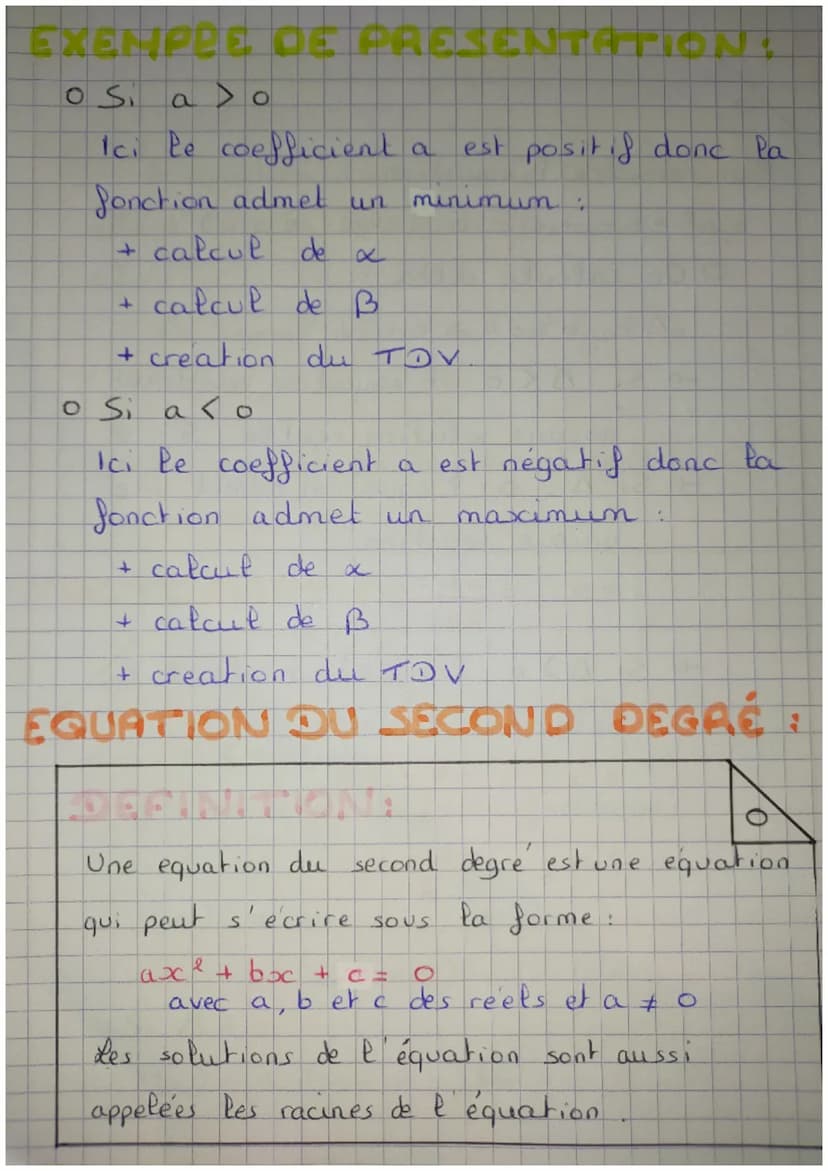 EXEMPLE DE PRESENTATION :
o Si a > 0
Ici le coefficient a est positif donc la
fonction admet un minimum :
+ calcul de α
+ calcul de β
+ creation du TDV.
o Si a < 0
Ici le coefficient a est négatif donc la
fonction admet un maximum :
+ calcul de α
+ calcul de β
+ creation du TDV
EQUATION DU SECOND DEGRÉ :
DEFINITION :
Une equation du second degré est une équation
qui peut s'écrire sous la forme :
ax² + bx + c = 0
avec a, b et c des réels et a ≠ 0
Les solutions de l'équation sont aussi
appelées les racines de l'équation.